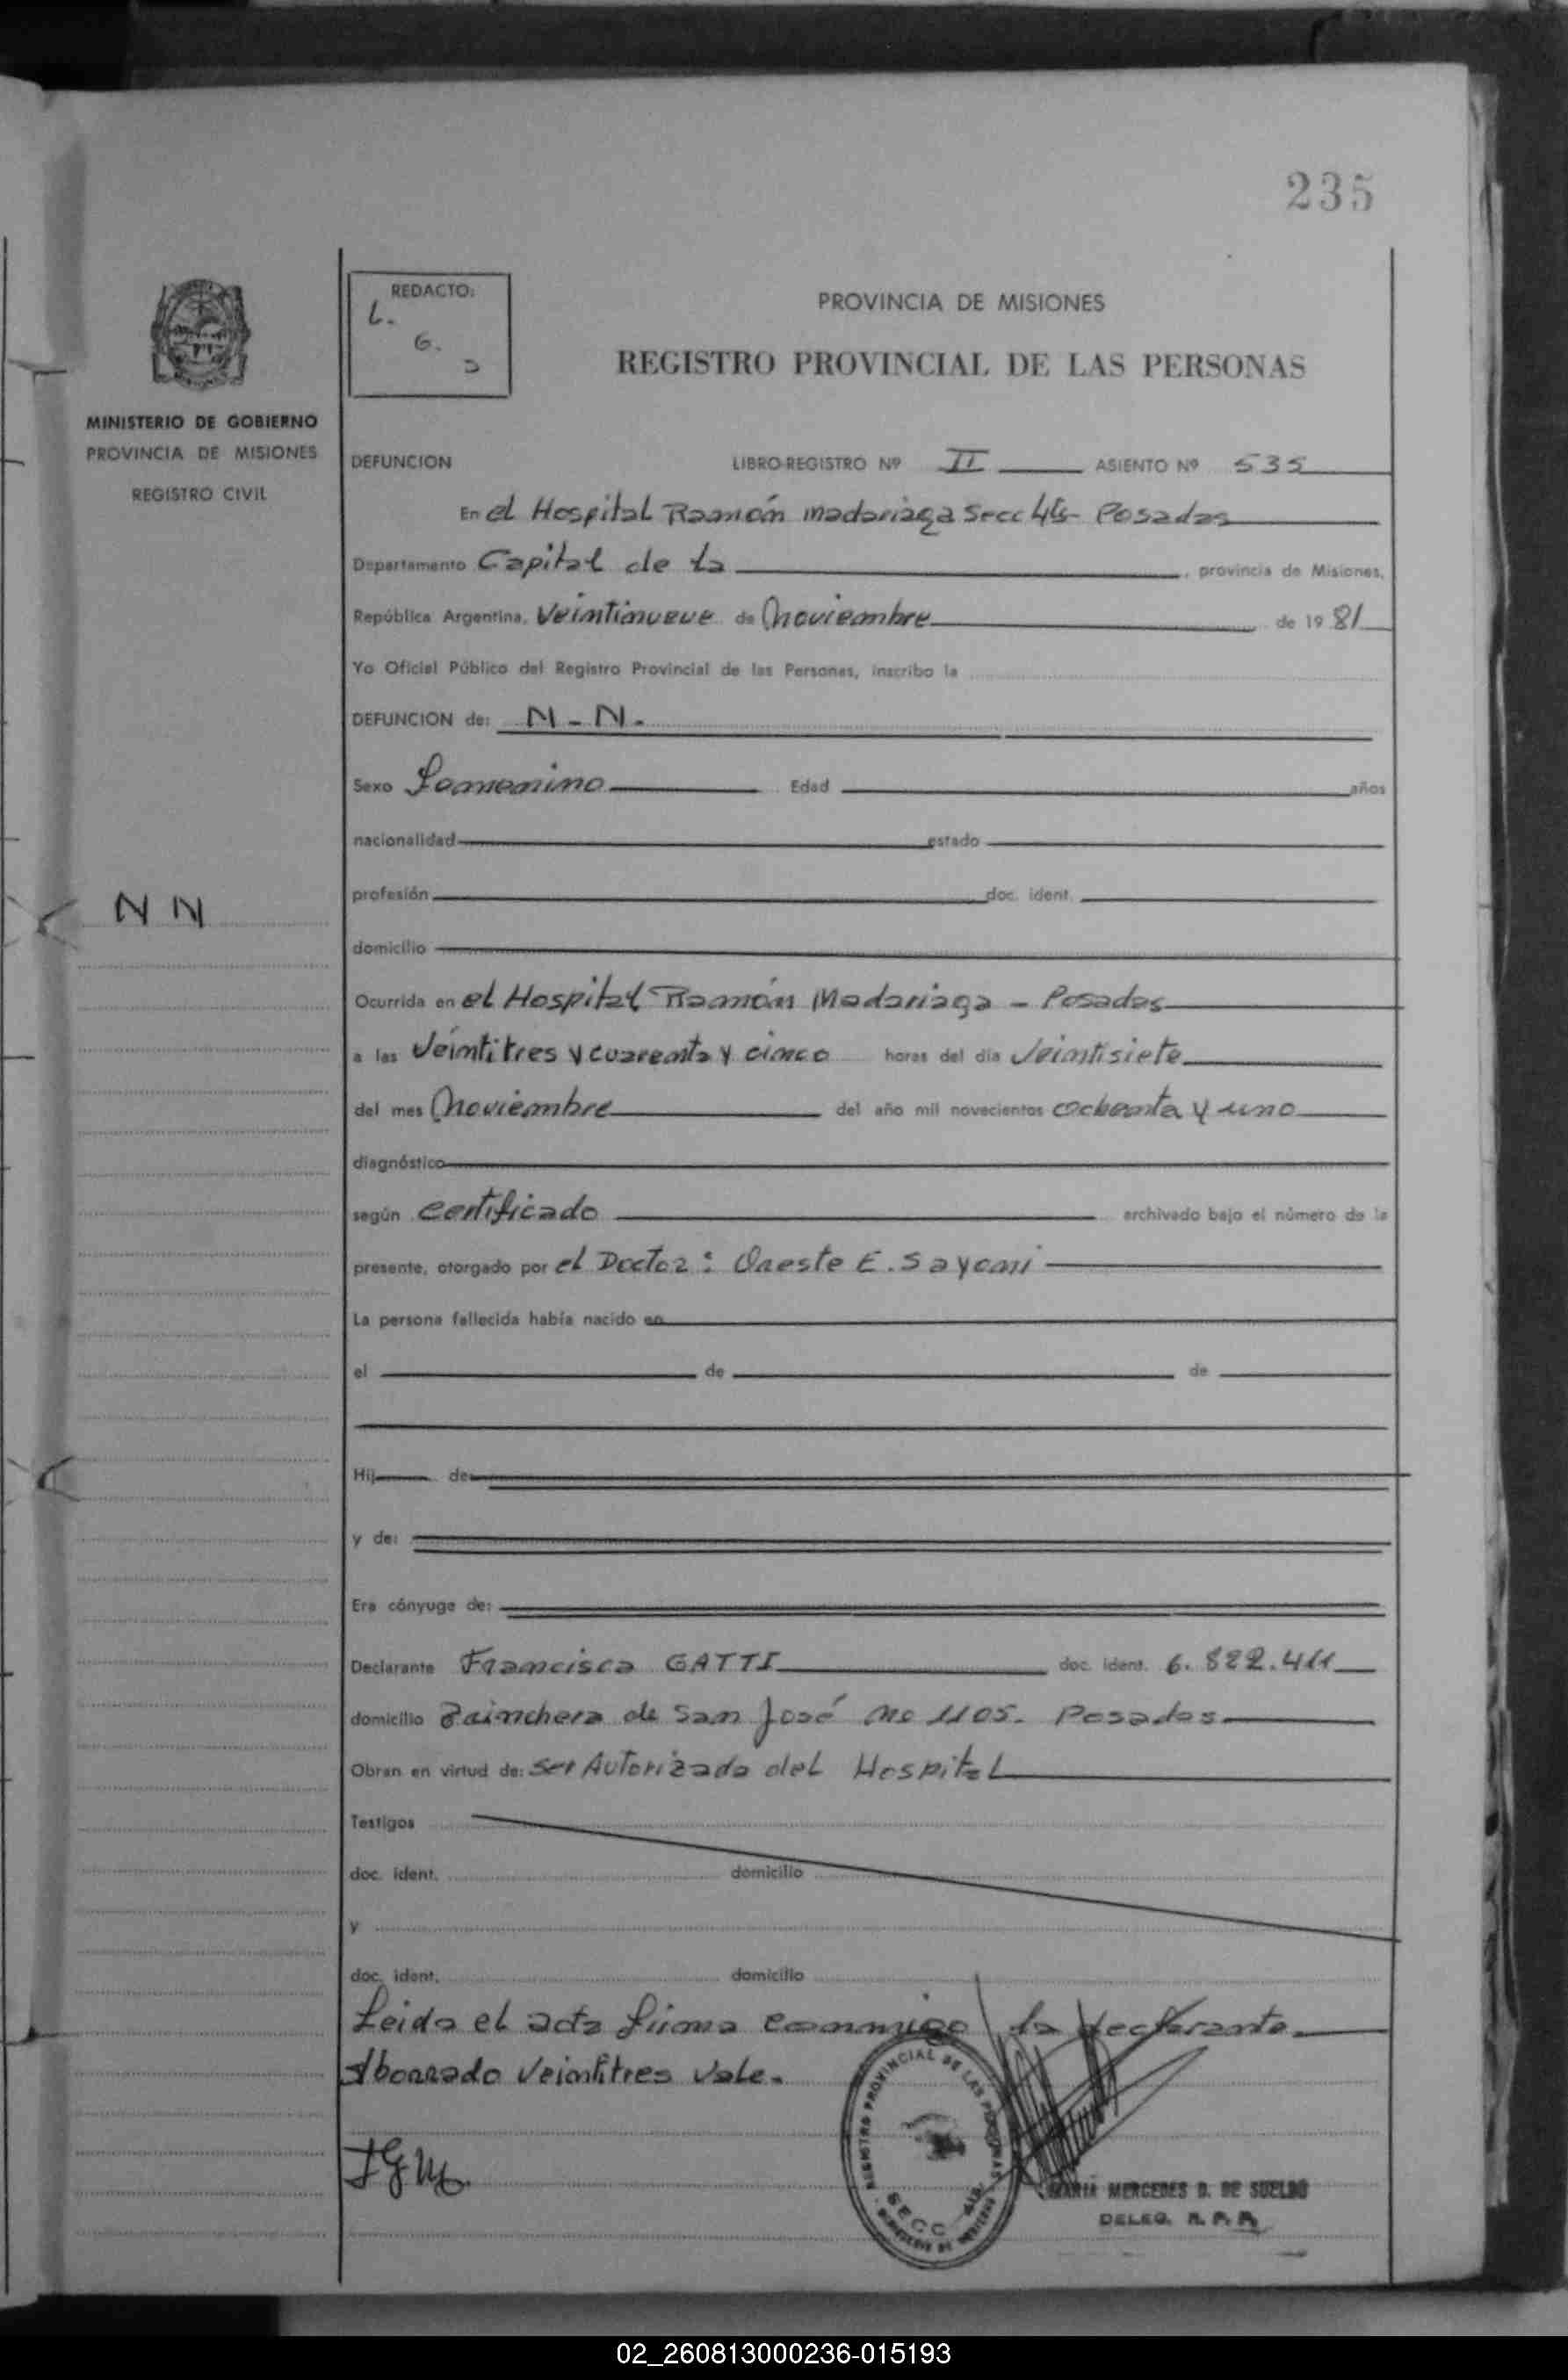 235
REDACTO:
L.
G.
PROVINCIA DE MISIONES
REGISTRO PROVINCIAL DE LAS PERSONAS
MINISTERIO DE GOBIERNO
PROVINCIA DE MISIONES
REGISTRO CIVIL
DEFUNCION LIBRO-REGISTRO Nº II ASIENTO Nº 535
En el Hospital Ramón Madariaga Secc 4ta- Posadas
Departamento Capital de la , provincia de Misiones,
República Argentina, Veintinueve de Noviembre de 19 81
Yo Oficial Público del Registro Provincial de las Personas, inscribo la
DEFUNCION de: N-N.
Sexo Femenino Edad años
nacionalidad estado
profesión doc. ident.
N N
domicilio
Ocurrida en el Hospital Ramón Madariaga - Posadas
a las Veintitres y cuarenta y cinco horas del día Veintisiete
del mes Noviembre del año mil novecientos ochenta y uno
diagnóstico
según certificado archivado bajo el número de la
presente, otorgado por el Doctor: Oreste E.
La persona fallecida había nacido en
el de de
Hij de
y de:
Era cónyuge de:
Declarante Francisca GATTI doc. ident. 6.822.411
domicilio de San José no 1105. Posadas
Obran en virtud de: ser Autorizada del Hospital
Testigos
doc. ident. domicilio
y
doc. ident. domicilio
Leida el acta firma conmigo la declarante.
Veintitres Vale.
REGISTRO PROVINCIAL DE LAS PERSONAS
SECC. 4ta.
MARIA MERCEDES D. DE SUELDO
DELEG. R. P. P.
02_260813000236-015193